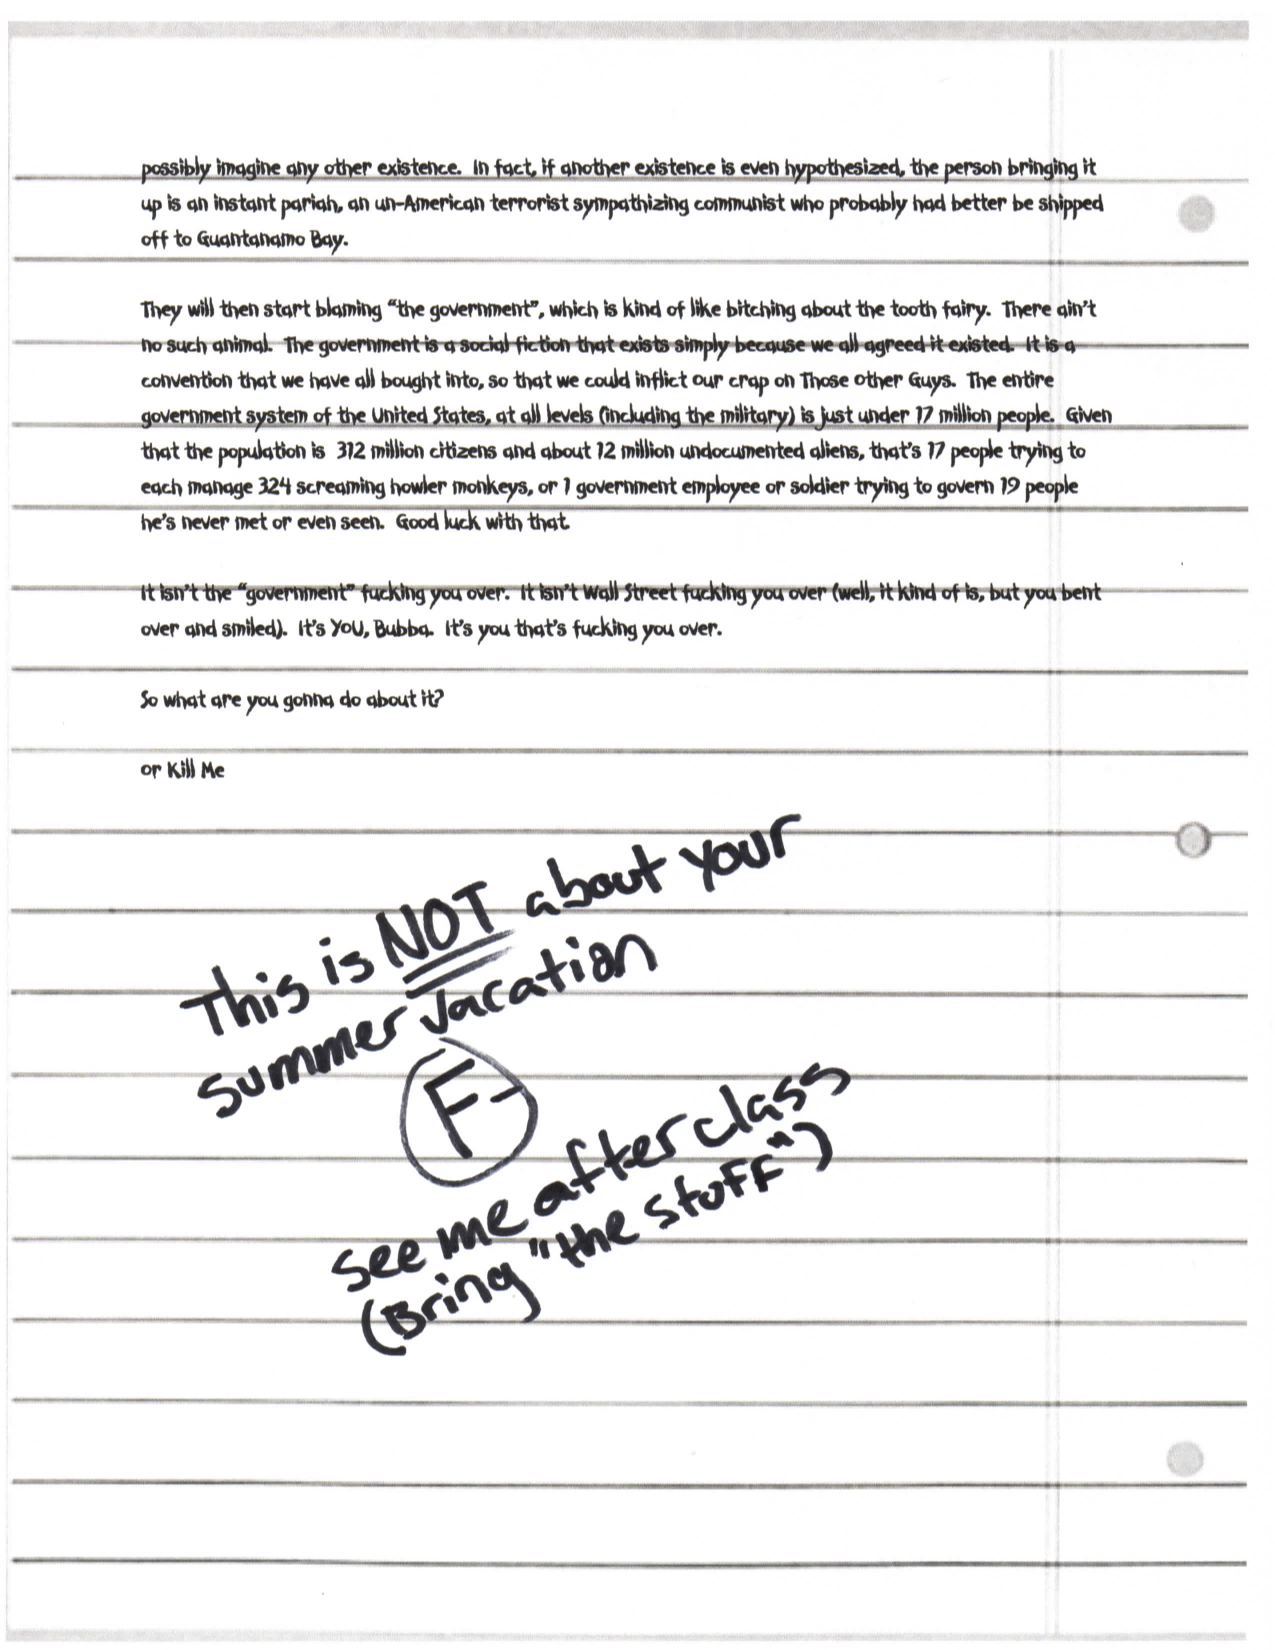 possibly imagine any other existence.  In fact, if another existence is even hypothesized, the person bringing it
up is an instant pariah, an un-American terrorist sympathizing communist who probably had better be shipped
off to Guantanamo Bay.
They will then start blaming "the government", which is kind of like bitching about the tooth fairy.  There ain't
no such animal.  The government is a social fiction that exists simply because we all agreed it existed.  It is a
convention that we have all bought into, so that we could inflict our crap on Those Other Guys.  The entire
government system of the United States, at all levels (including the military) is just under 17 million people.  Given
that the population is  312 million citizens and about 12 million undocumented aliens, that's 17 people trying to
each manage 324 screaming howler monkeys, or 1 government employee or soldier trying to govern 19 people
he's never met or even seen.  Good luck with that.
It isn't the "government" fucking you over.  It isn't Wall Street fucking you over (well, it kind of is, but you bent
over and smiled).  It's YOU, Bubba.  It's you that's fucking you over.
So what are you gonna do about it?
or Kill Me
This is NOT about your
summer vacation
F-
see me after class
(Bring "the stuff")